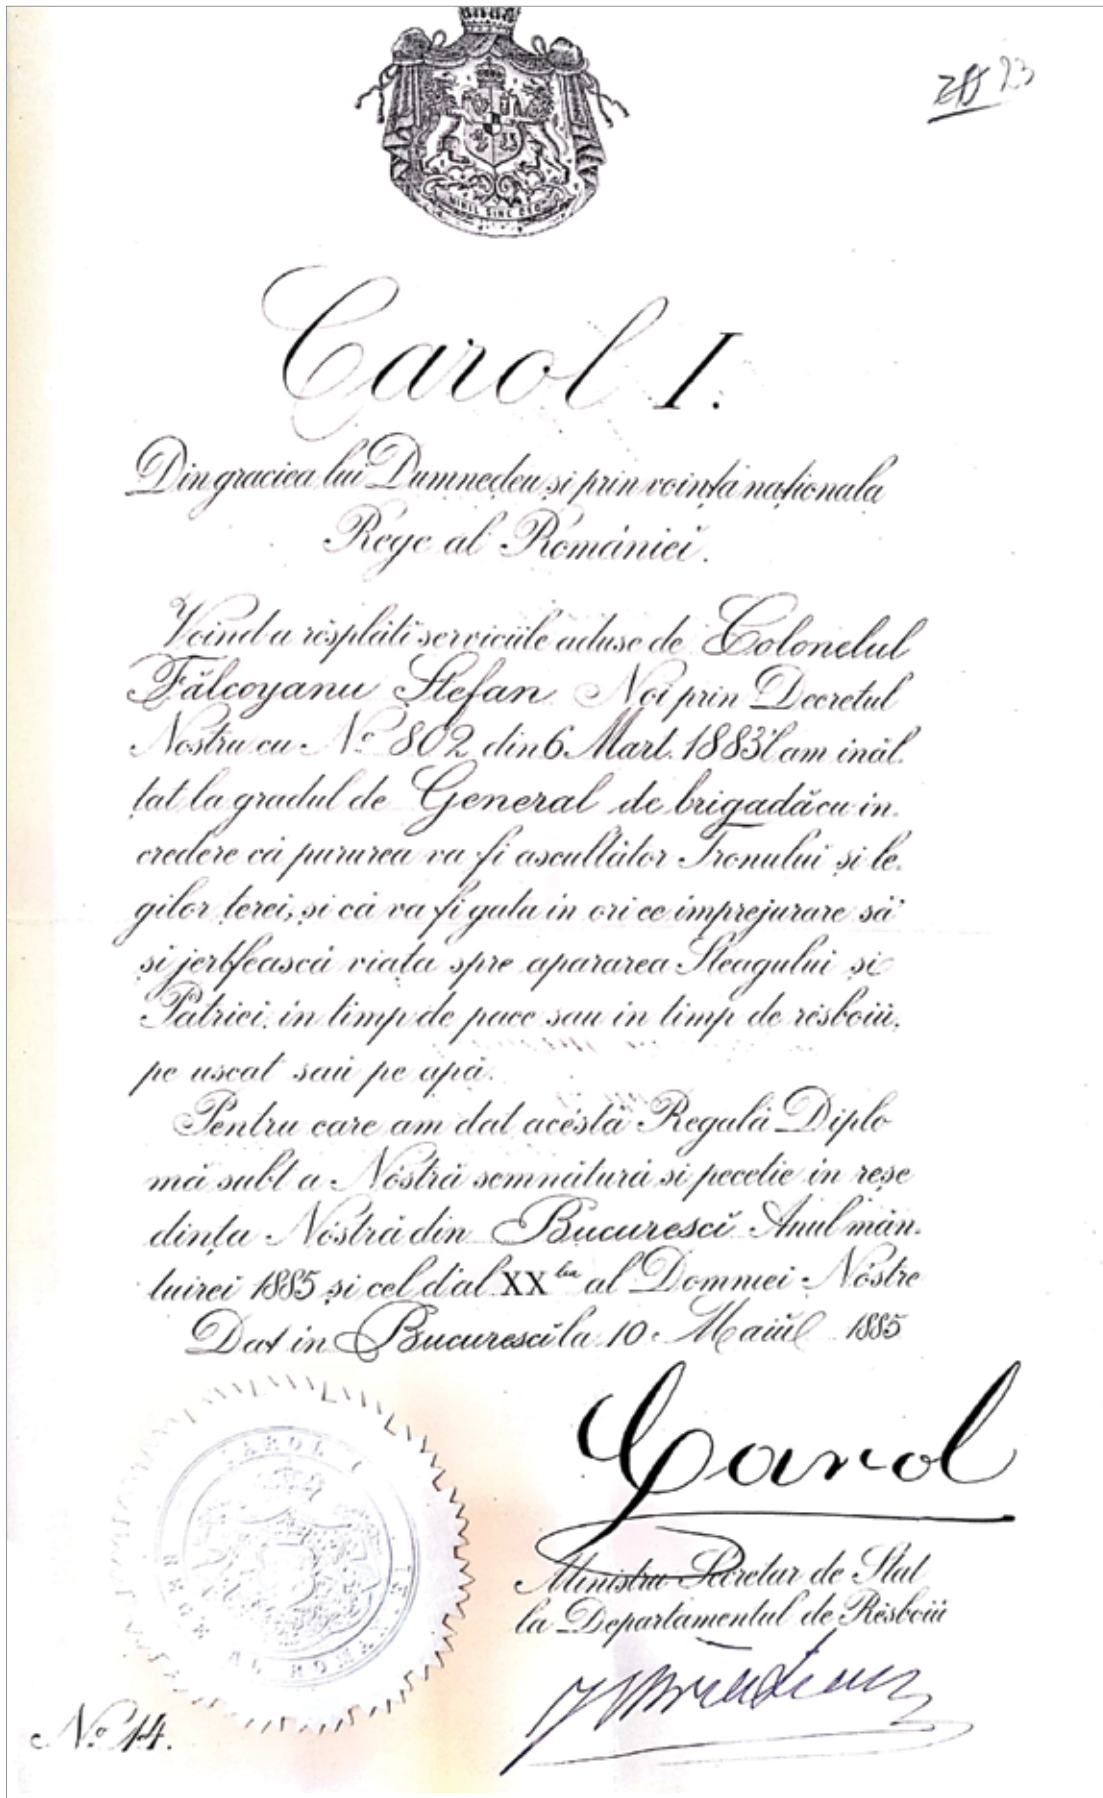 23
NIHIL SINE DEO
Carol I.
Din graciea lui Dumnedeu și prin voința naționala
Rege al României.
Voind a résplăti serviciile aduse de Colonelul
Fălcoyanu Stefan Noi prin Decretul
Nostru cu No 802 din 6 Mart. 1883 l'am inăl.
țat la gradul de General de brigadă cu in.
credere că pururea va fi ascultător Tronului și le.
gilor țerei, și că va fi gata in ori ce imprejurare să'
și jertfească viața spre apararea Steagului și
Patriei. in timp de pace sau in timp de résboiŭ,
pe uscat saŭ pe apă.
Pentru care am dat acéstă Regală Diplo
mă subt a Nóstră semnătură si pecetie in reșe
dința Nóstră din Bucurescĭ Anul mân.
tuirei 1885 și cel d'al XX lea al Domniei Nóstre
Dat in Bucurescĭ la 10 Maiŭ 1885
Carol
CAROL I REGE AL ROMANIEI
Ministru Secretar de Stat
la Departamentul de Résboiŭ
No 14.